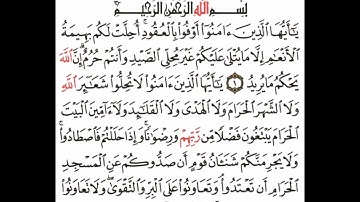 بِسْمِ اللَّهِ الرَّحْمَٰنِ الرَّحِيمِ
يَٰٓأَيُّهَا ٱلَّذِينَ ءَامَنُوٓا۟ أَوْفُوا۟ بِٱلْعُقُودِ ۚ أُحِلَّتْ لَكُم بَهِيمَةُ
ٱلْأَنْعَٰمِ إِلَّا مَا يُتْلَىٰ عَلَيْكُمْ غَيْرَ مُحِلِّى ٱلصَّيْدِ وَأَنتُمْ حُرُمٌ ۗ إِنَّ ٱللَّهَ
يَحْكُمُ مَا يُرِيدُ ١ يَٰٓأَيُّهَا ٱلَّذِينَ ءَامَنُوا۟ لَا تُحِلُّوا۟ شَعَٰٓئِرَ ٱللَّهِ
وَلَا ٱلشَّهْرَ ٱلْحَرَامَ وَلَا ٱلْهَدْىَ وَلَا ٱلْقَلَٰٓئِدَ وَلَآ ءَآمِّينَ ٱلْبَيْتَ
ٱلْحَرَامَ يَبْتَغُونَ فَضْلًا مِّن رَّبِّهِمْ وَرِضْوَٰنًا ۚ وَإِذَا حَلَلْتُمْ فَٱصْطَادُوا۟ ۚ
وَلَا يَجْرِمَنَّكُمْ شَنَـَٔانُ قَوْمٍ أَن صَدُّوكُمْ عَنِ ٱلْمَسْجِدِ
ٱلْحَرَامِ أَن تَعْتَدُوا۟ ۘ وَتَعَاوَنُوا۟ عَلَى ٱلْبِرِّ وَٱلتَّقْوَىٰ ۖ وَلَا تَعَاوَنُوا۟